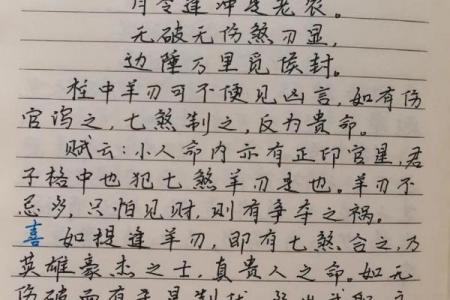 月令逢冲是老农。
无破无伤煞刃显,
边陲万里觅侯封。
柱中羊刃可不便见凶言,如有伤
官泻之,七煞制之,反为贵命。
赋云:小人命内亦有正印官星,君
子格中也犯七煞羊刃是也。羊刃不
忌多,只怕见财,则有争夺之祸。
喜 如提逢羊刃,即有七煞合之,乃
英雄豪杰之士,真贵人之命。如无
伤破而有杀星制伏